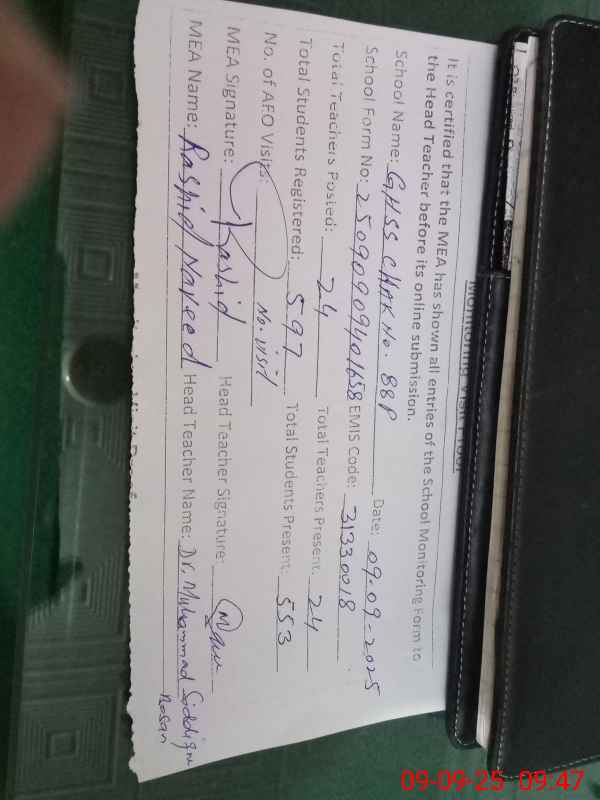 Monitoring Visit Proof
It is certified that the MEA has shown all entries of the School Monitoring Form to
the Head Teacher before its online submission.
School Name: GHSS CHAK No. 88P Date: 09-09-2025
School Form No: 25090909401658 EMIS Code: 31330018
Total Teachers Posted: 24 Total Teachers Present: 24
Total Students Registered: 597 Total Students Present: 553
No. of AFO Visits: No. visit
MEA Signature: Rashid Head Teacher Signature:
MEA Name: Rashid Naveed Head Teacher Name: Dr. Muhammad Siddique
09-09-25 09:47